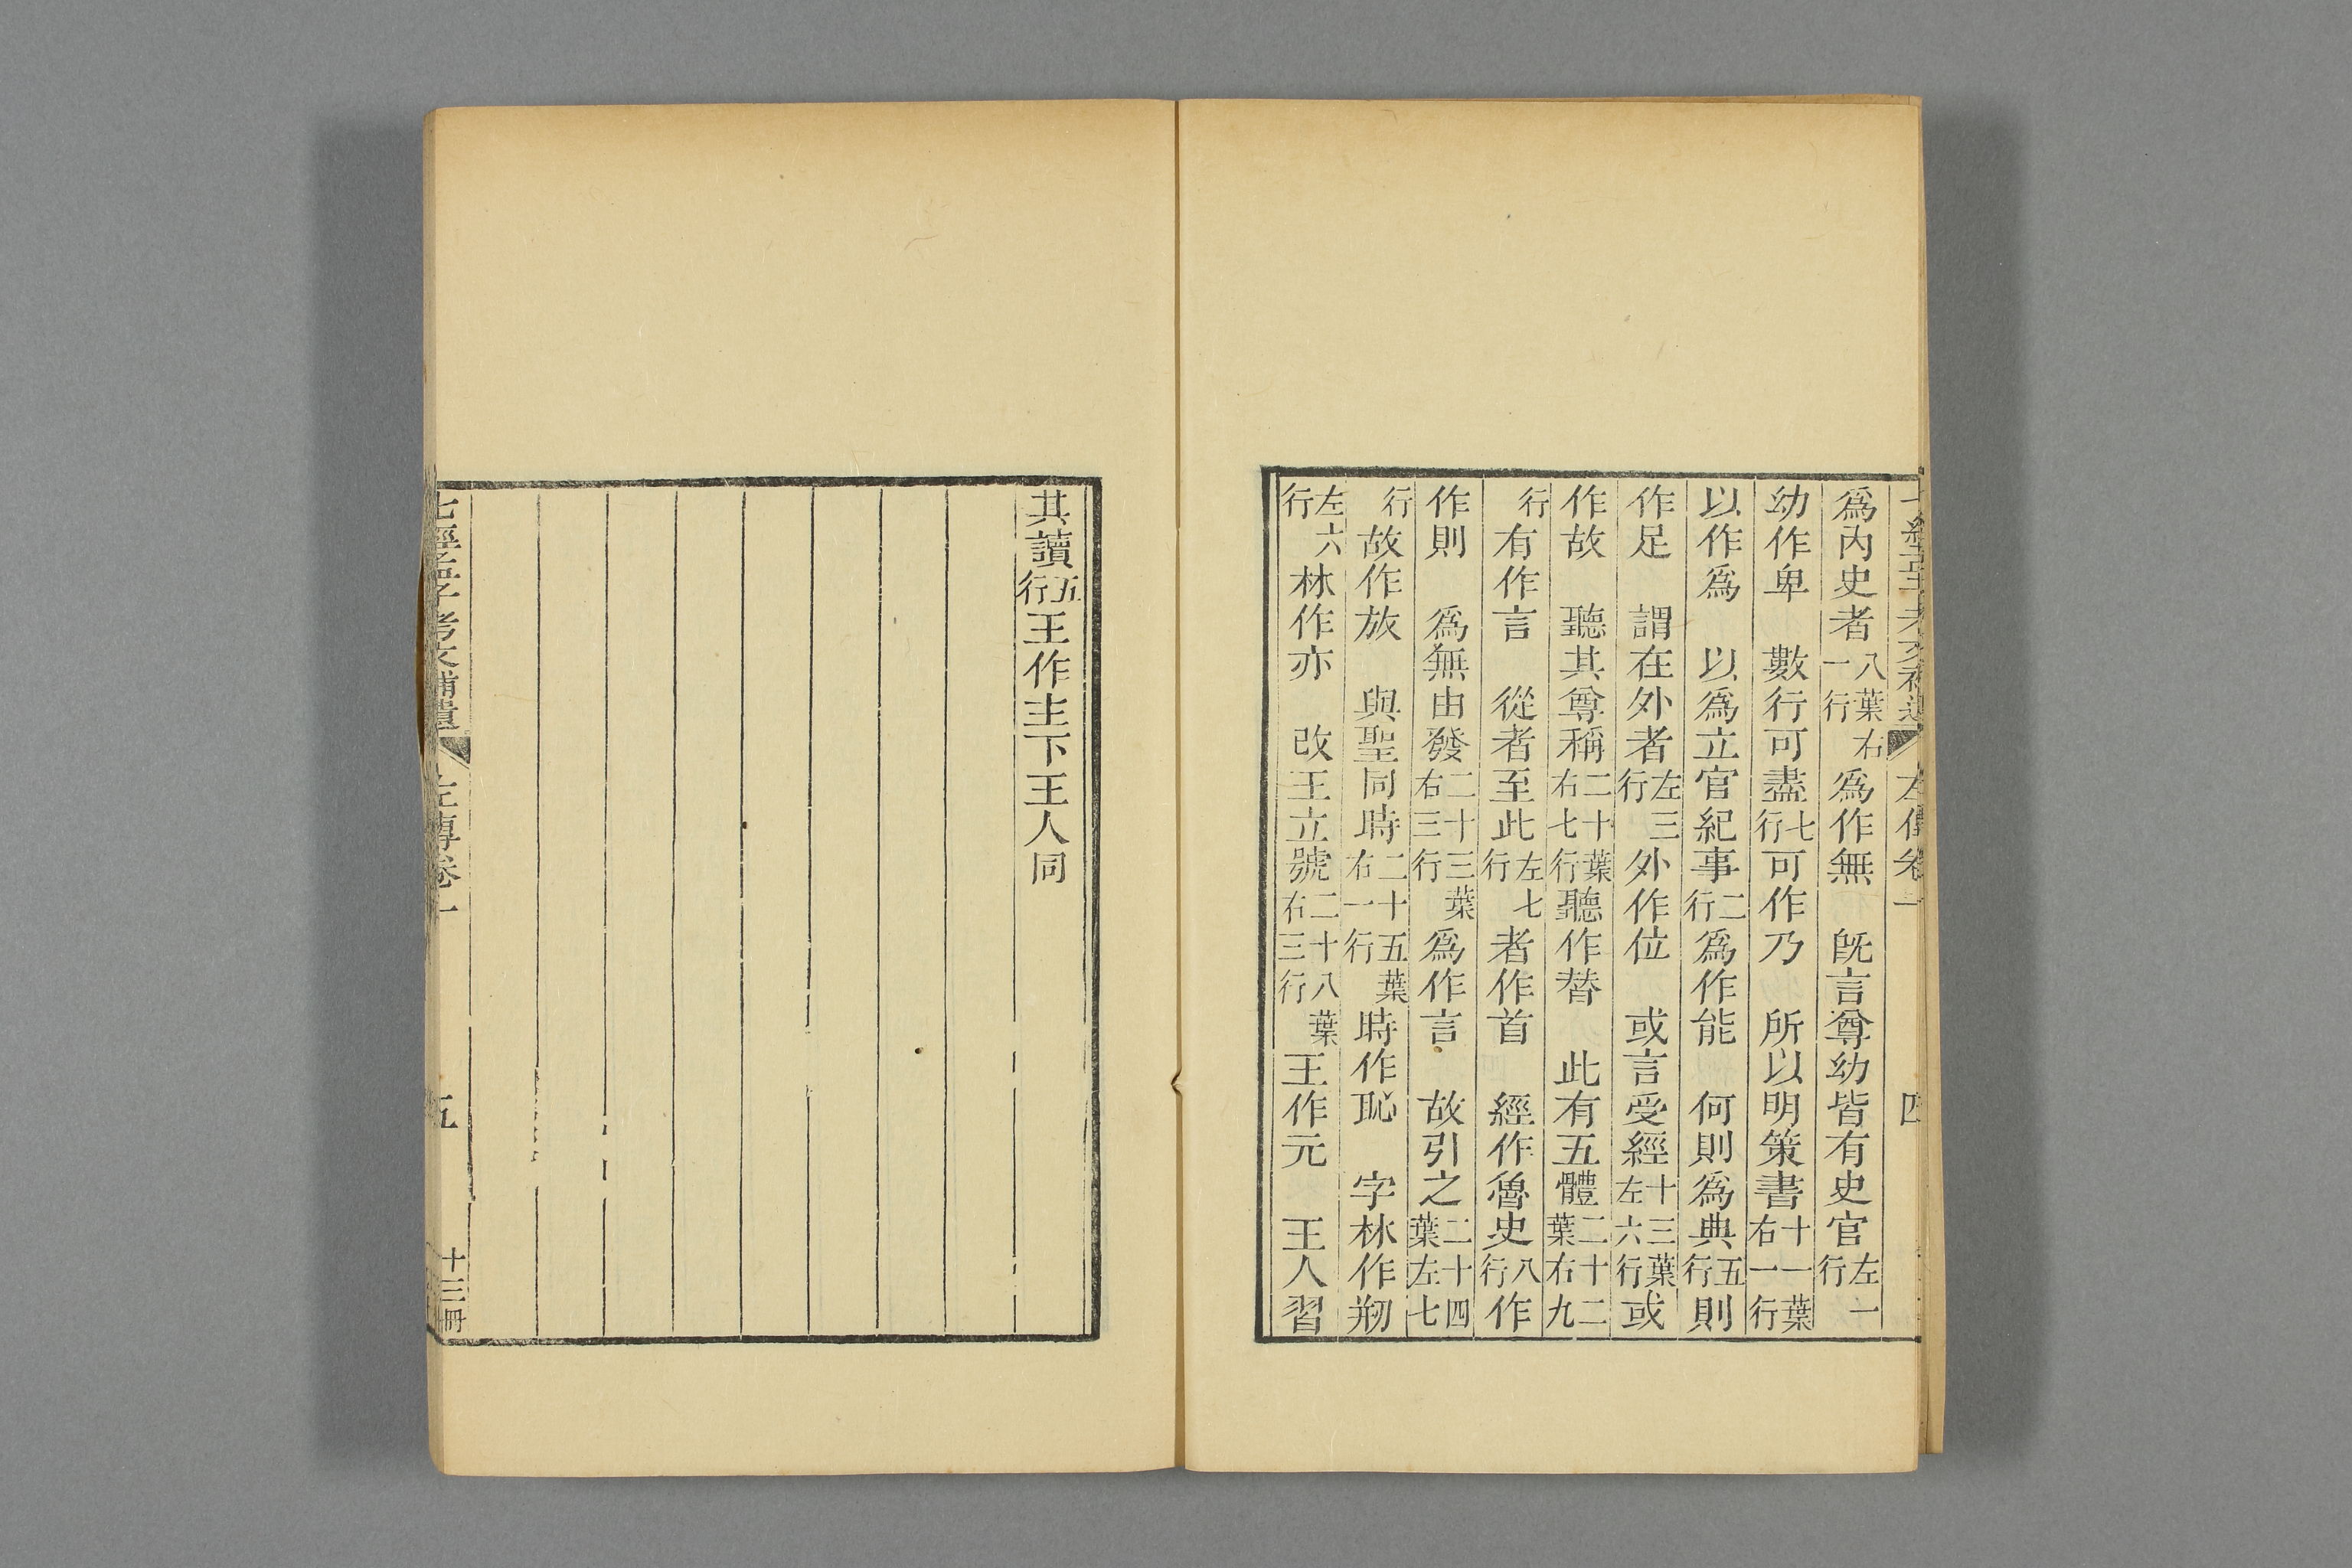 七經孟子考文補遺 左傳卷一 四
爲內史者八葉右一行爲作無 旣言尊幼皆有史官左一行
幼作卑 數行可盡七行可作乃 所以明策書十一葉右一行
以作爲 以爲立官紀事二行爲作能 何則爲典五行則
作足 謂在外者左三行外作位 或言受經十三葉左六行或
作故 聽其尊稱二十葉右七行聽作替 此有五體二十二葉右九
行有作言 從者至此左七行者作首 經作魯史八行作
作則 爲無由發二十三葉右三行爲作言 故引之二十四葉左七
行故作放 與聖同時二十五葉右一行時作恥 字林作剏
左六行林作亦 改王立號二十八葉右三行王作元 王人習
其讀五行王作主下王人同
七經孟子考文補遺 左傳卷一 五 十三冊